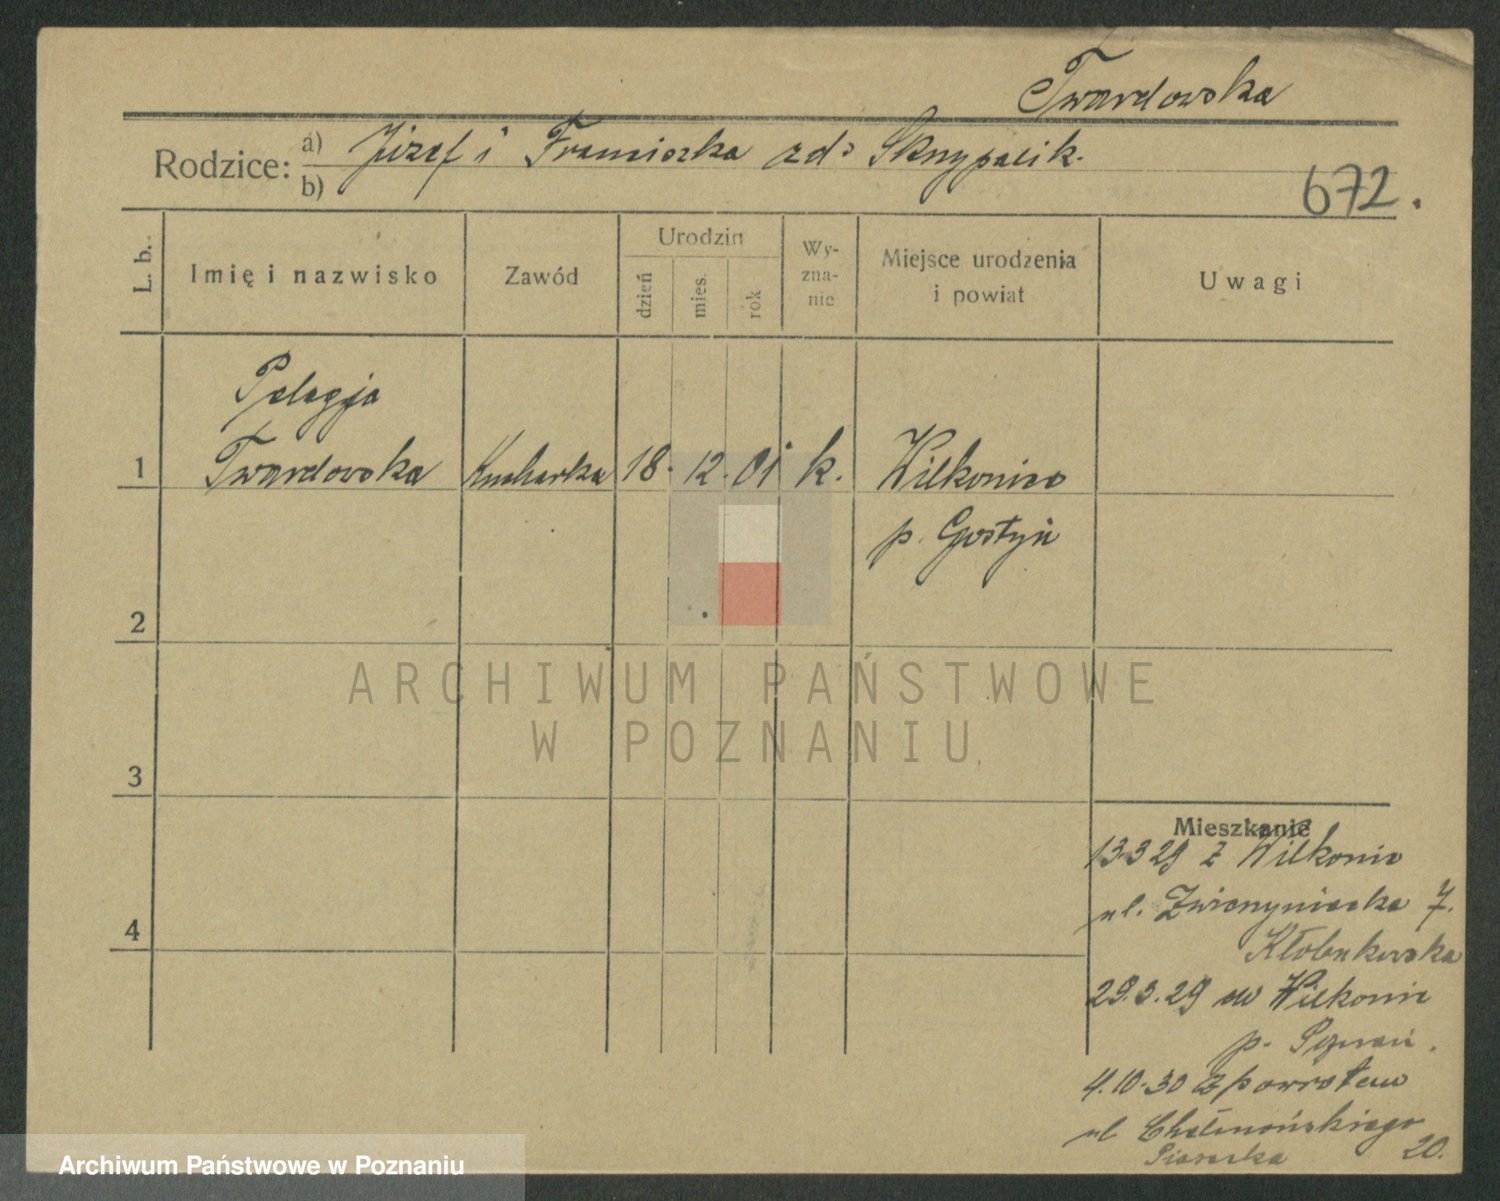 Twardowska
Rodzice: a) Józef i Franciszka zd. Skrzypacik.
b)
672.
L. b.
Imię i nazwisko
Zawód
Urodzin
dzień
mies.
rók
Wy-
zna-
nie
Miejsce urodzenia
i powiat
Uwagi
Pelagja
1 Twardowska Kucharka 18. 12. 01 k. Wilkonice
p. Gostyń
2
ARCHIWUM PAŃSTWOWE
W POZNANIU
3
Mieszkanie
13.3 29 z Wilkonic
ul. Zwierzyniecka 7.
4
Kłobukowska
29.5.29 do Wilkonic
p. Poznań.
4.10.30 z powrotem
ul Chełmońskiego
Piasecka 20.
Archiwum Państwowe w Poznaniu